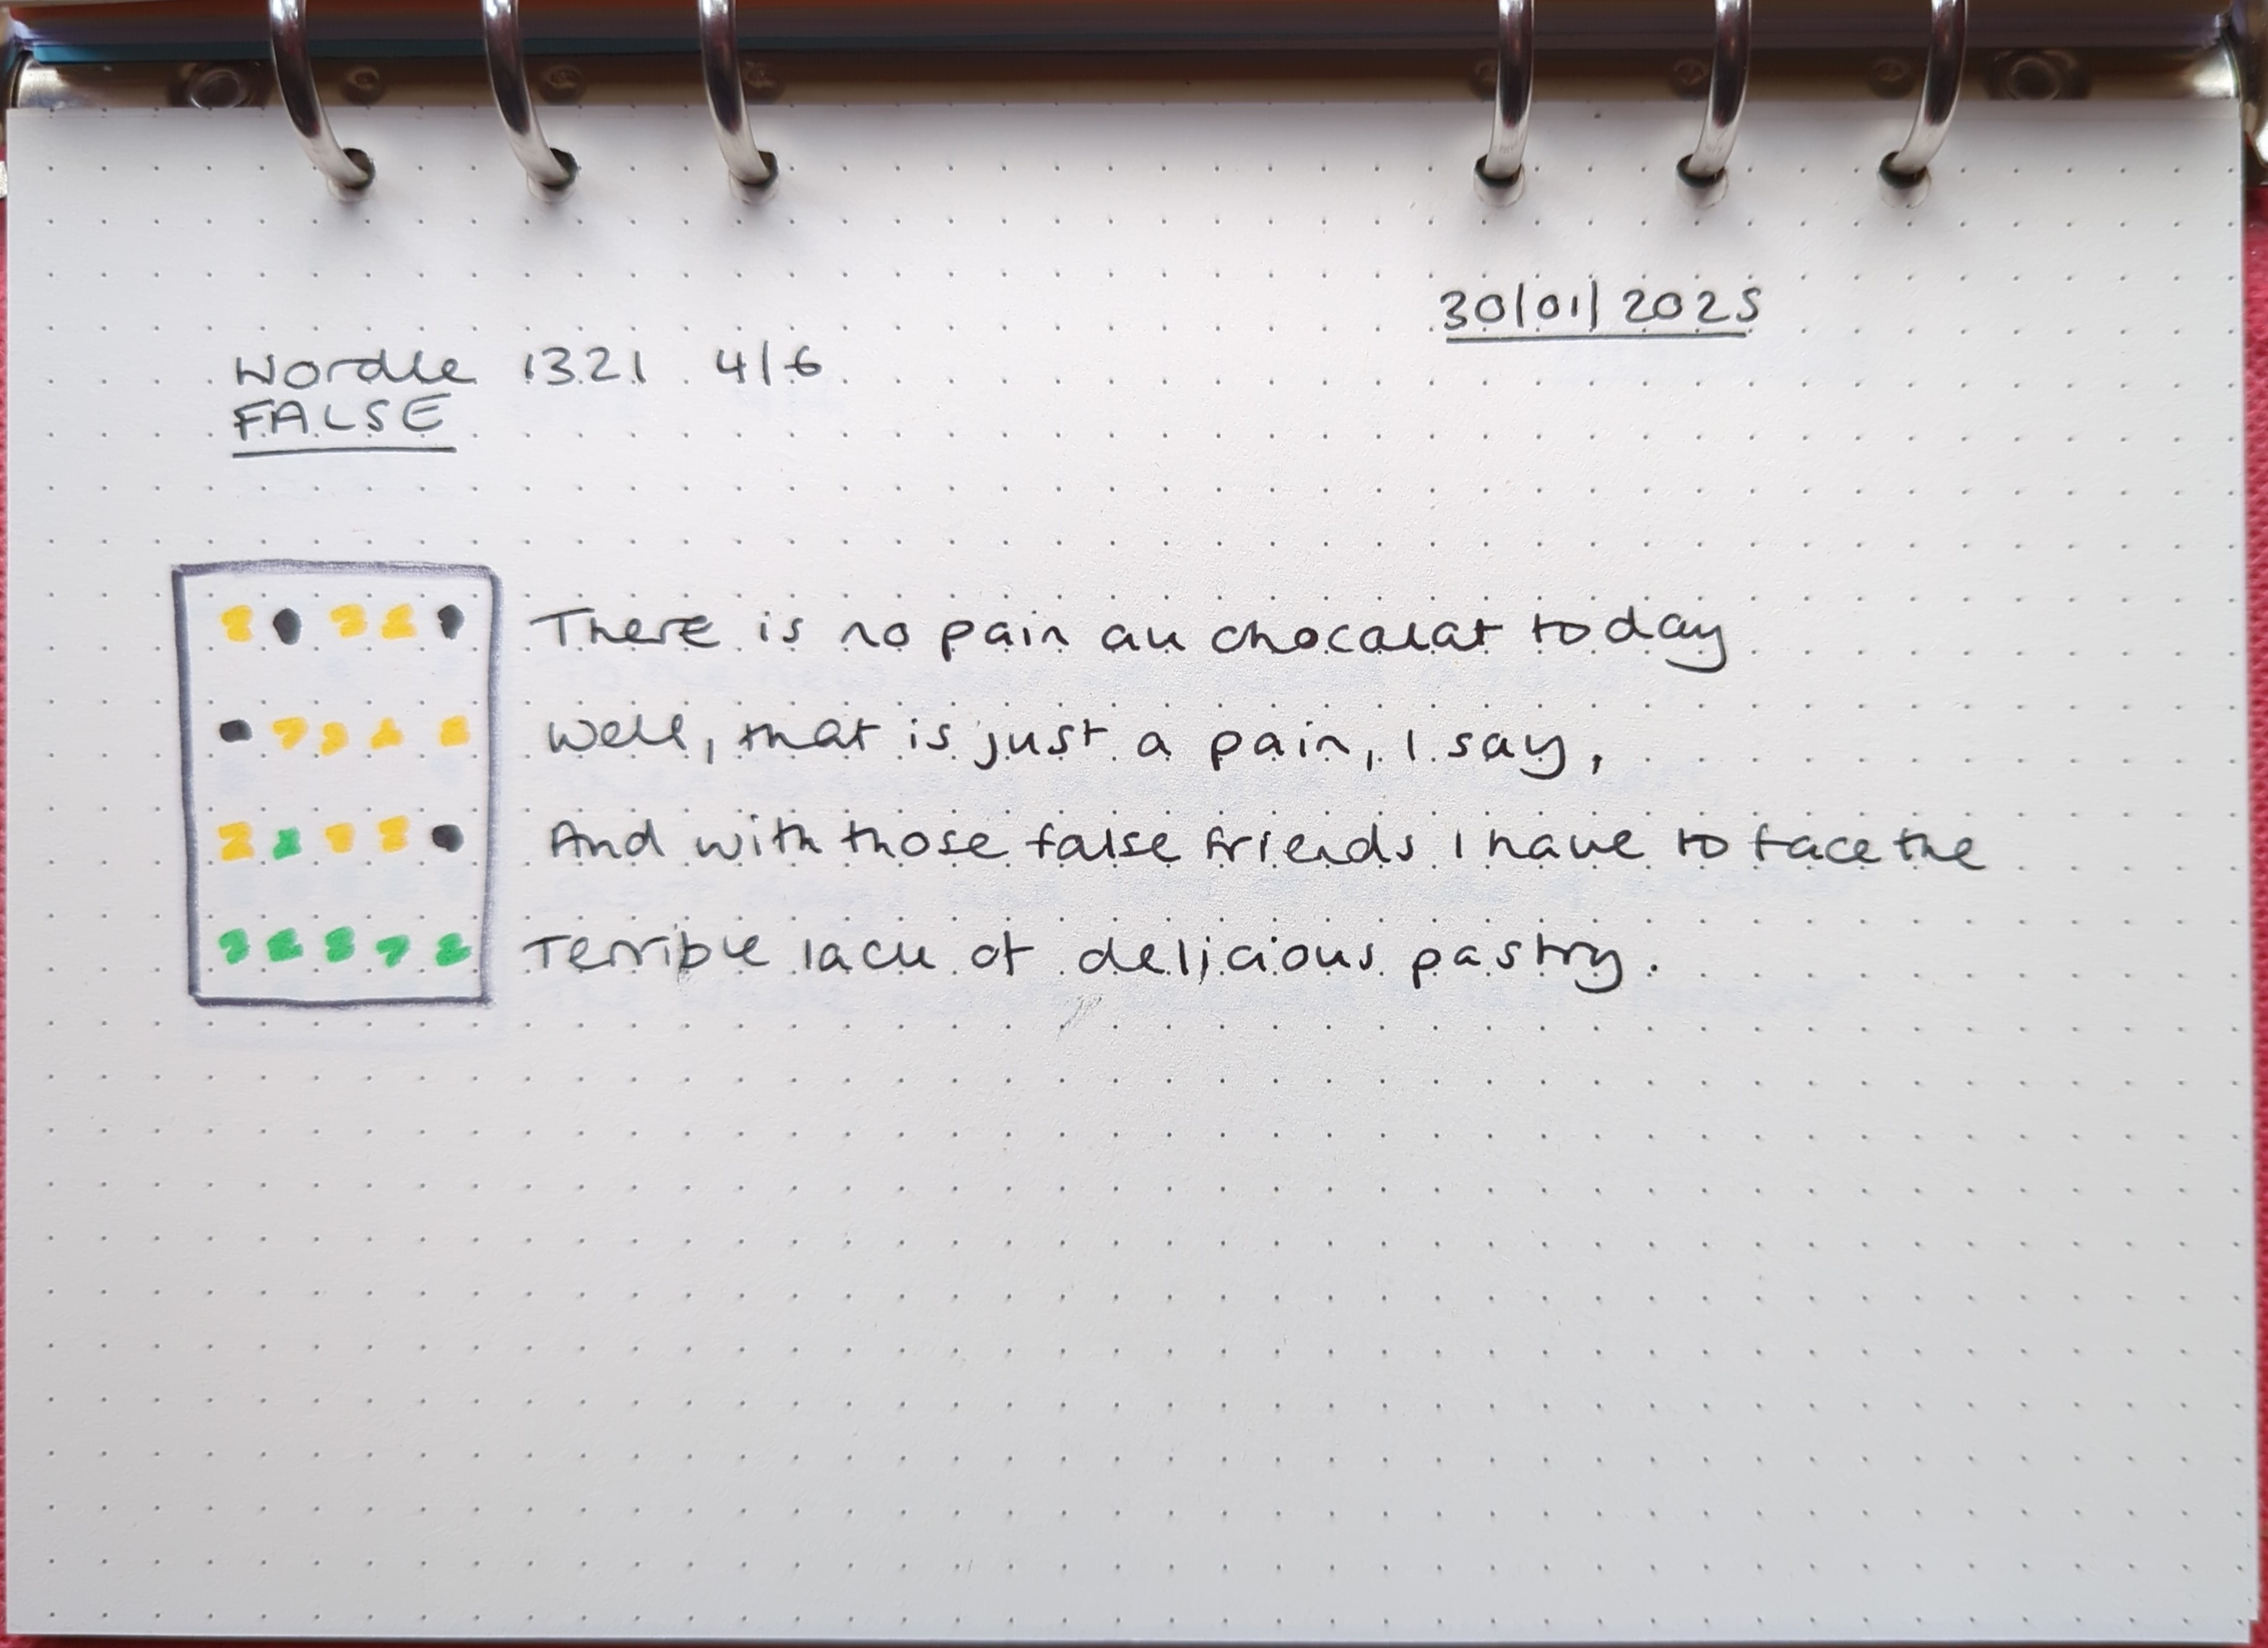 30/01/2025
Wordle 1321 4/6
FALSE
There is no pain au chocolat today
Well, that is just a pain, I say,
And with those false friends I have to face the
Terrible lack of delicious pastry.